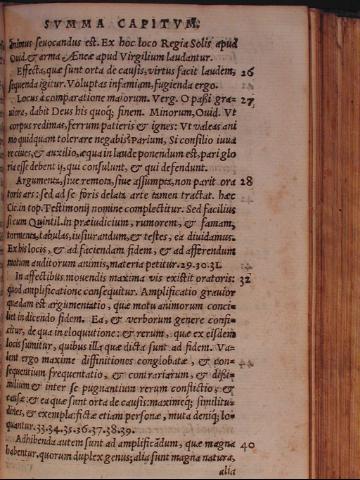 SVMMA CAPITVM.
animus seuocandus est. Ex hoc loco Regia Solis apud
Ouid. & arma Æneæ apud Virgilium laudantur.
Effecta, quæ sunt orta de causis, virtus facit laudem, 26
sequenda igitur. Voluptas infamiam, fugienda ergo.
Locus à comparatione maiorum. Verg. O paßi gra- 27
uiora, dabit Deus his quoq; finem. Minorum, Ouid. Vt
corpus redimas, ferrum patieris & ignes: Vt valeas ani
mo quidquam tolerare negabis? Parium, Si consilio iuua
re ciues, & auxilio, æqua in laude ponendum est, pari glo
ria esse debent ij, qui consulunt, & qui defendunt.
Argumenta, siue remota, siue assumpta, non parit ora 28
toris ars: sed ad se foris delata arte tamen tractat. hæc
Cic. in top. Testimonij nomine complectitur. Sed facilius
sit cum Quintil. in præiudicium, rumorem, & famam,
tormenta, tabulas, iusiurandum, & testes, ea diuidamus.
Ex his locis, & ad faciendam fidem, & ad afferendum
motum auditorum animis, materia petitur. 29. 30. 31.
In affectibus mouendis maxima vis existit oratoris: 32
quod amplificatione consequitur. Amplificatio grauior
quædam est argumentatio, quæ motu animorum conci-
liet in dicendo fidem. Ea, & verborum genere confi-
citur, de qua in eloquutione: & rerum, quæ ex eisdem
locis sumitur, quibus illa quæ dicta sunt ad fidem. Va-
lent ergo maxime diffinitiones conglobatæ, & con-
sequentium frequentatio, & contrariarum, & dißi-
milium & inter se pugnantium rerum conflictio, &
causæ: & ea quæ sunt orta de causis: maximeq; similitu-
dines, & exempla: fictæ etiam personæ, muta deniq; lo-
quantur. 33. 34. 35. 36. 37. 38. 39.
Adhibenda autem sunt ad amplificandum, quæ magna 40
habentur. quorum duplex genus; alia sunt magna natura,
alia